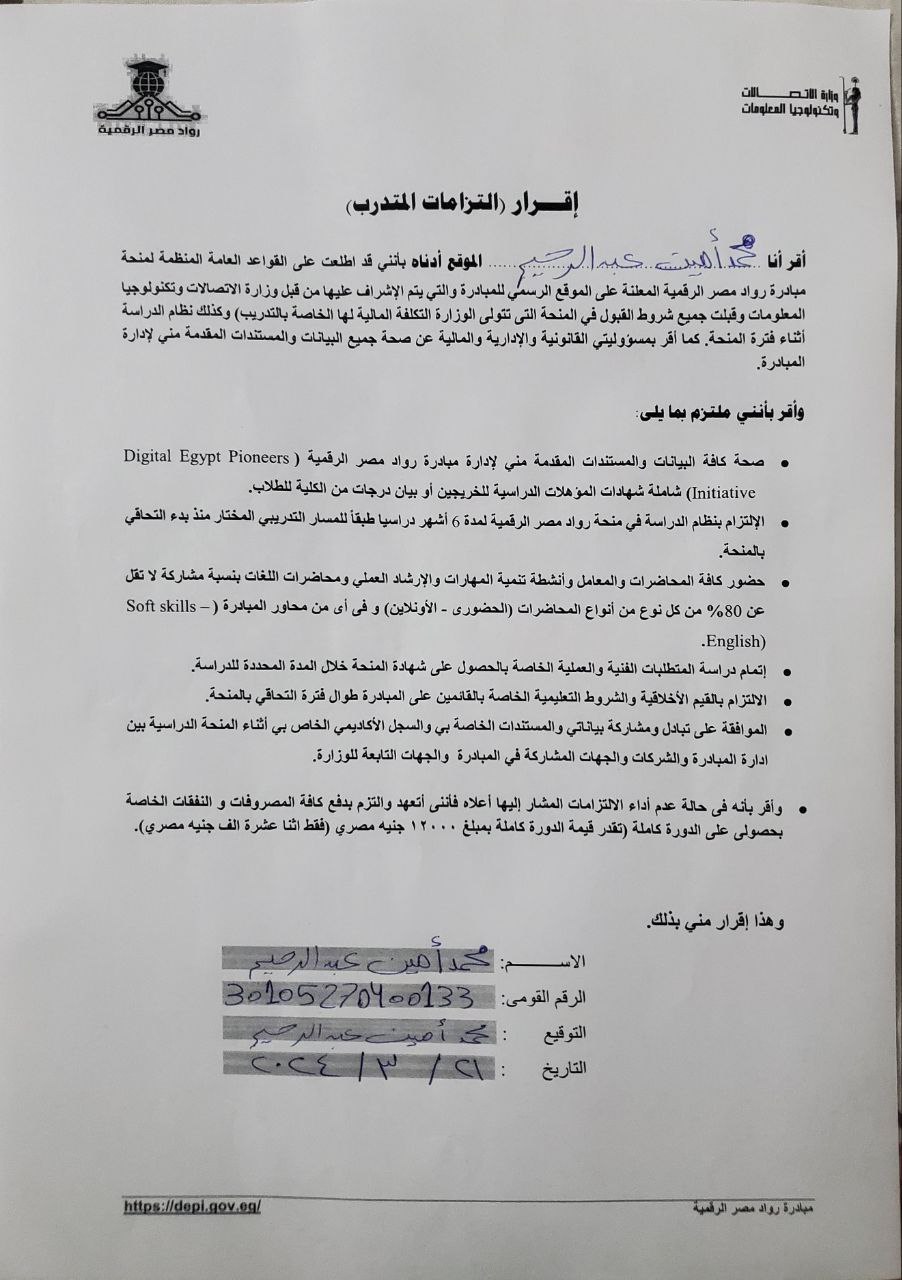 رواد مصر الرقمية
وزارة الاتصالات
وتكنولوجيا المعلومات
إقـــرار (التزامات المتدرب)
أقر أنا محمد أمين عبد الرحيم الموقع أدناه بأنني قد اطلعت على القواعد العامة المنظمة لمنحة
مبادرة رواد مصر الرقمية المعلنة على الموقع الرسمي للمبادرة والتي يتم الإشراف عليها من قبل وزارة الاتصالات وتكنولوجيا
المعلومات وقبلت جميع شروط القبول في المنحة التى تتولى الوزارة التكلفة المالية لها الخاصة بالتدريب) وكذلك نظام الدراسة
أثناء فترة المنحة. كما أقر بمسؤوليتي القانونية والإدارية والمالية عن صحة جميع البيانات والمستندات المقدمة مني لإدارة
المبادرة.
وأقر بأنني ملتزم بما يلى:
• صحة كافة البيانات والمستندات المقدمة مني لإدارة مبادرة رواد مصر الرقمية (Digital Egypt Pioneers
Initiative) شاملة شهادات المؤهلات الدراسية للخريجين أو بيان درجات من الكلية للطلاب.
• الإلتزام بنظام الدراسة في منحة رواد مصر الرقمية لمدة 6 أشهر دراسيا طبقاً للمسار التدريبي المختار منذ بدء التحاقي
بالمنحة.
• حضور كافة المحاضرات والمعامل وأنشطة تنمية المهارات والإرشاد العملي ومحاضرات اللغات بنسبة مشاركة لا تقل
عن 80% من كل نوع من أنواع المحاضرات (الحضورى - الأونلاين) و فى أى من محاور المبادرة (Soft skills –
English).
• إتمام دراسة المتطلبات الفنية والعملية الخاصة بالحصول على شهادة المنحة خلال المدة المحددة للدراسة.
• الالتزام بالقيم الأخلاقية والشروط التعليمية الخاصة بالقائمين على المبادرة طوال فترة التحاقي بالمنحة.
• الموافقة على تبادل ومشاركة بياناتي والمستندات الخاصة بي والسجل الأكاديمي الخاص بي أثناء المنحة الدراسية بين
ادارة المبادرة والشركات والجهات المشاركة في المبادرة والجهات التابعة للوزارة.
• وأقر بأنه فى حالة عدم أداء الالتزامات المشار إليها أعلاه فأننى أتعهد والتزم بدفع كافة المصروفات و النفقات الخاصة
بحصولى على الدورة كاملة (تقدر قيمة الدورة كاملة بمبلغ ١٢٠٠٠ جنيه مصري (فقط اثنا عشرة الف جنيه مصري).
وهذا إقرار مني بذلك.
الاســــم: محمد أمين عبد الرحيم
الرقم القومى: 30105270400133
التوقيع : محمد أمين عبد الرحيم
التاريخ : ٢١ / ٣ / ٢٠٢٤
مبادرة رواد مصر الرقمية
https://depi.gov.eg/